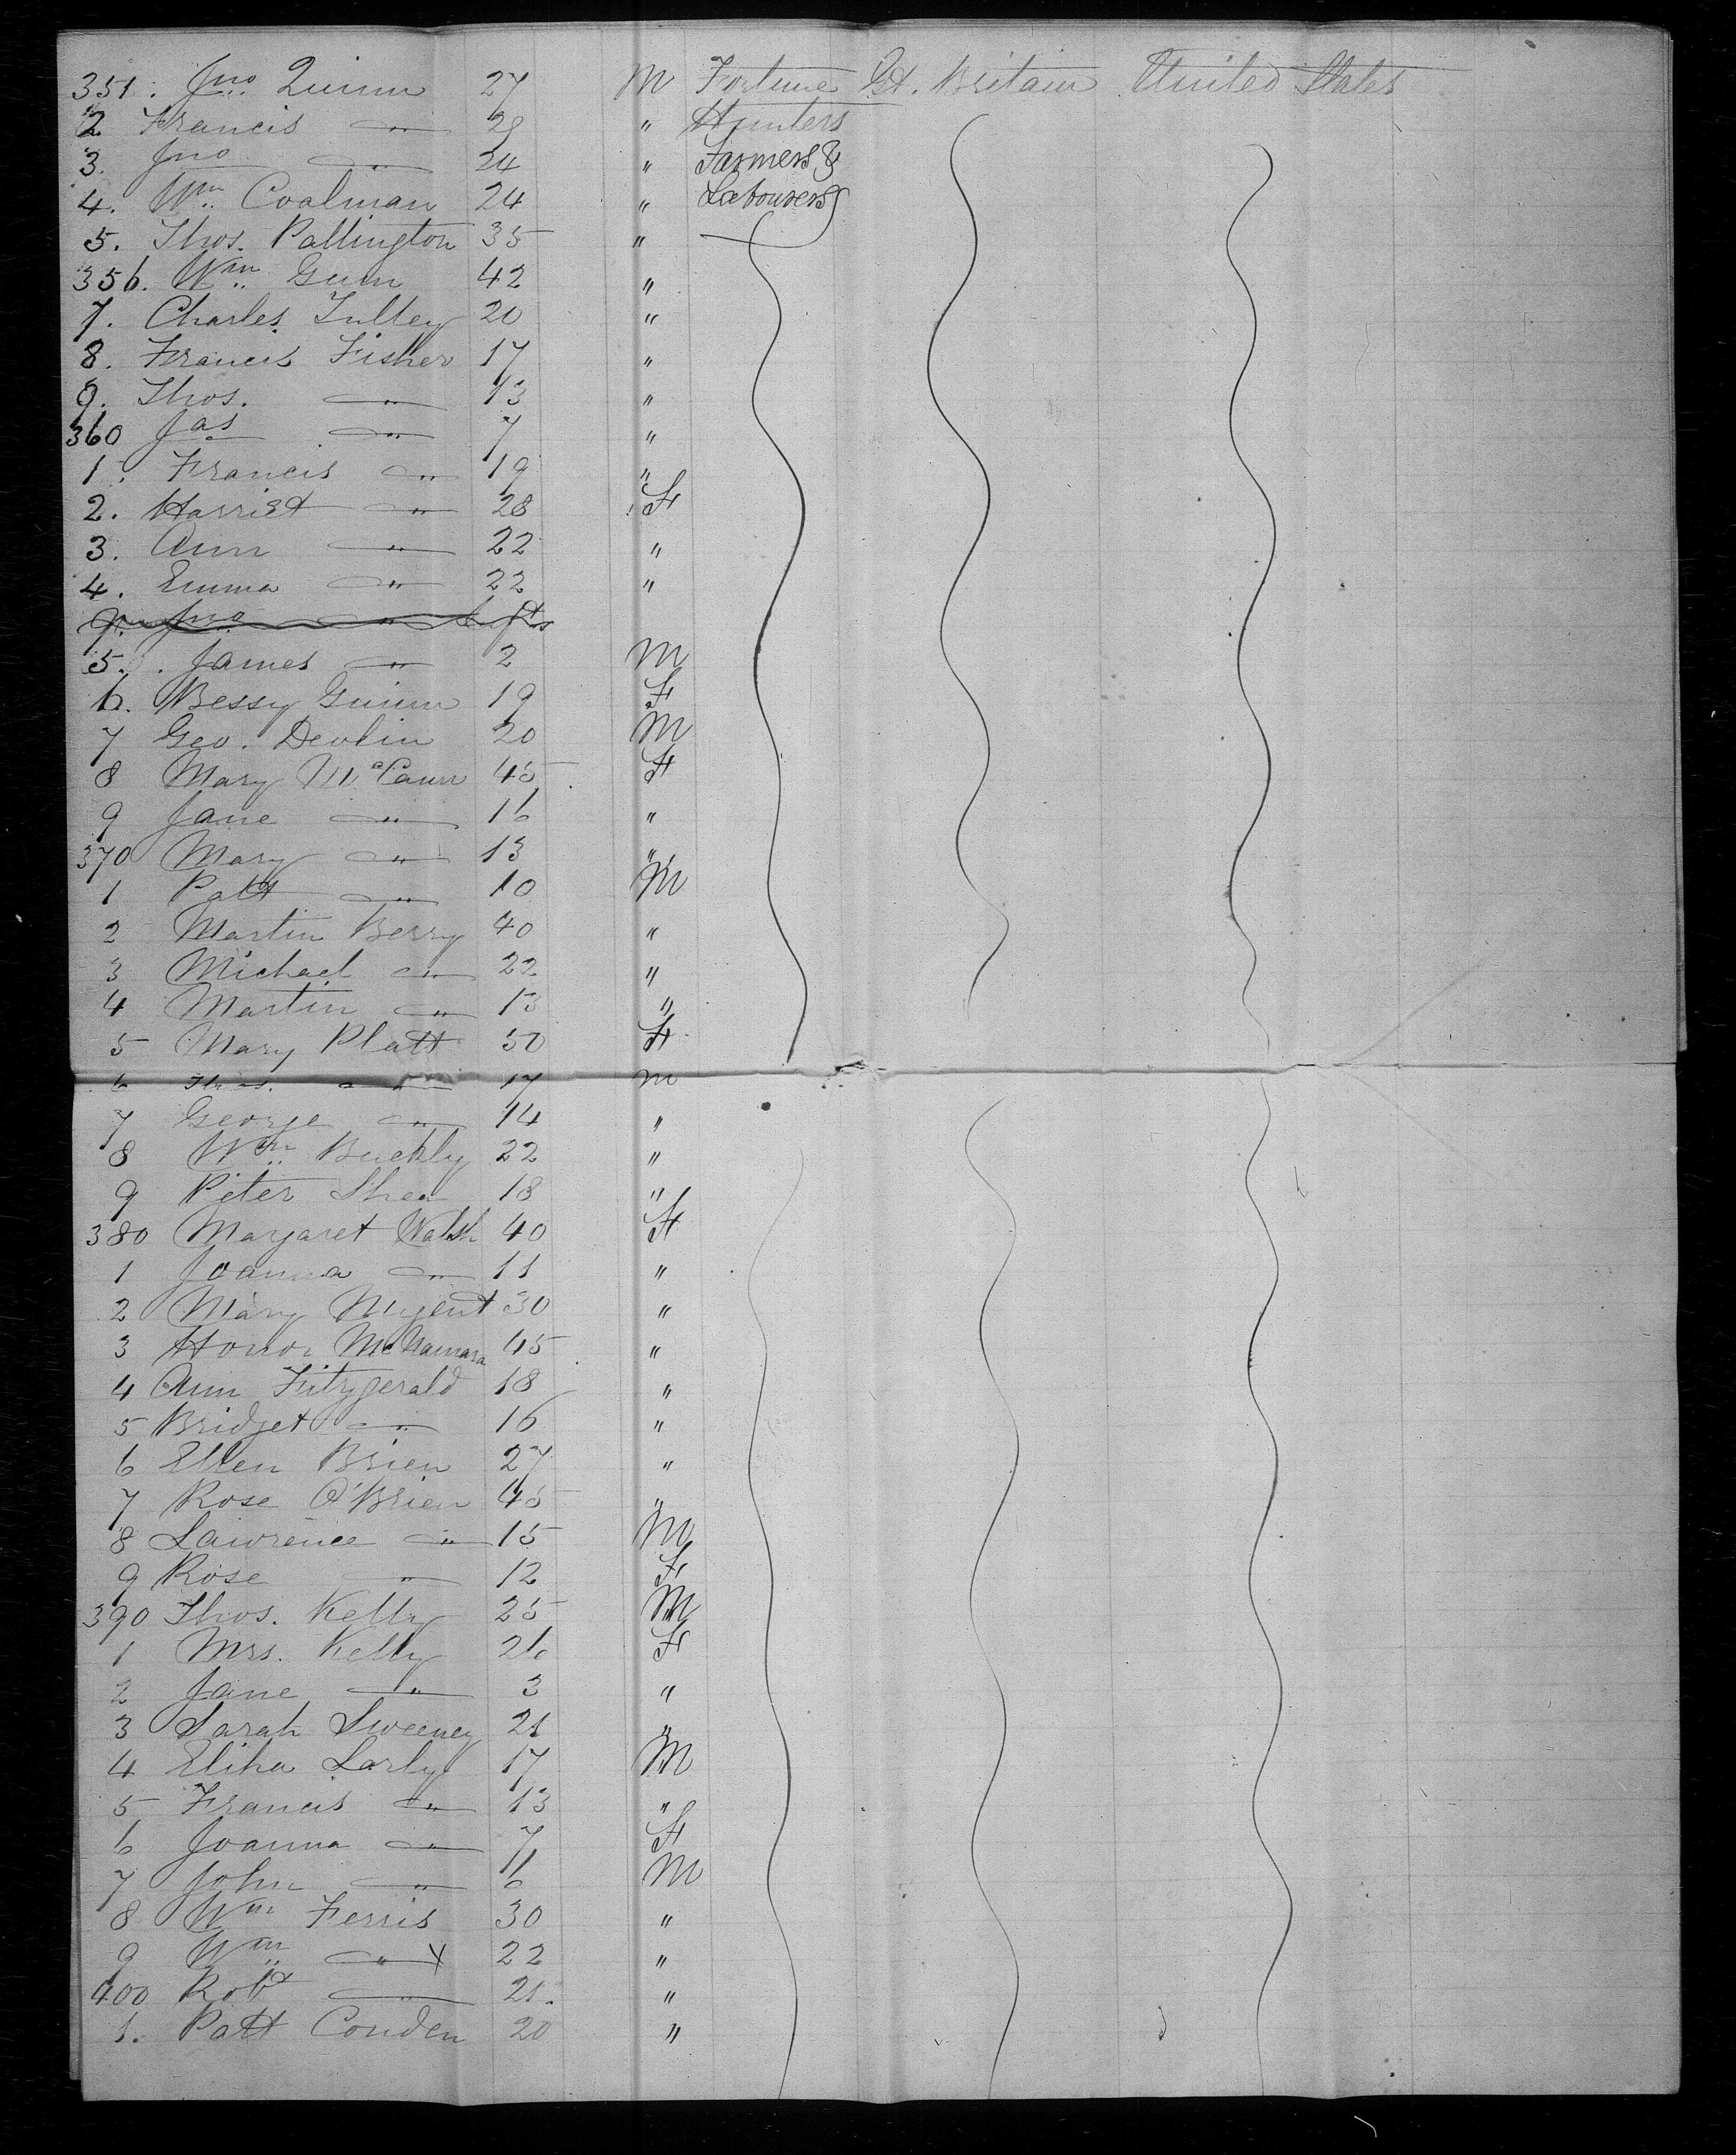 351. Jno. Quinn 27 M Fortune Gt. Britain United States
2 Francis " 28 " Hunters
3. Jno " 24 " Farmers &
4. Wm. Coalman 24 " Labourers
5. Thos. Pallington 35 "
356. Wm. Guin 42 "
7. Charles Tulley 20 "
8. Francis Fisher 17 "
9. Thos. " 13 "
360 Jas " 7 "
1. Francis " 19 "
2. Harriet " 28 F
3. Ann " 22 "
4. Emma " 22 "
9. Jno "
5. James " 2 M
6. Bessy Guinn 19 F
7 Geo. Devlin 20 M
8 Mary McCann 45 F
9 Jane " 16 "
370 Mary " 13 "
1 Patt " 10 M
2 Martin Berry 40 "
3 Michael " 22 "
4 Martin " 13 "
5 Mary Platt 50 F
6 Thos. " 17 M
7 George " 14 "
8 Wm. Buckly 22 "
9 Peter Shea 18 "
380 Margaret Walsh 40 F
1 Joanna " 11 "
2 Mary Nugent 30 "
3 Honor McNamara 45 "
4 Ann Fitzgerald 18 "
5 Bridget " 16 "
6 Ellen Brien 27 "
7 Rose O'Brien 45 "
8 Lawrence " 15 M
9 Rose " 12 F
390 Thos. Kelly 25 M
1 Mrs. Kelly 26 F
2 Jane " 3 "
3 Sarah Sweeney 21 "
4 Eliha Larly 17 M
5 Francis " 13 "
6 Joanna " 7 F
7 John " 6 M
8 Wm Ferris 30 "
9 Wm " 22 "
400 Robt " 21. "
1. Patt Conden 20 "